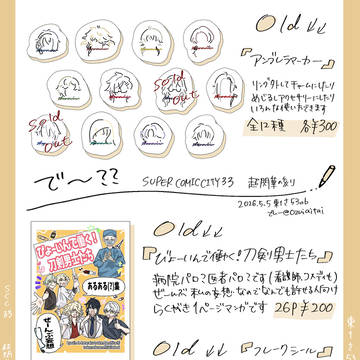 Old ↓↓
アンブレラマーカー
リング外してチャームにしたり
めじるしアクセサリーにしたり
いろんな使いができます
全12種 各¥300
Sold out
Sold out
で〜??
SUPER COMIC CITY 33 超閃華の刻
2026.5.5 東
Old ↓↓
びょーいんで働く!刀剣男士たち
病院パロ?医者パロ?です(看護師、コメディも)
ぜーんぶ私の妄想・なのでなんでも許せる人向け
らくがき1ページマンガです 26P ¥200
びょーいんで働く!
刀剣男士たち
あるある(?)集
ぜーんぶ妄想
Old ↓↓
フレークシール